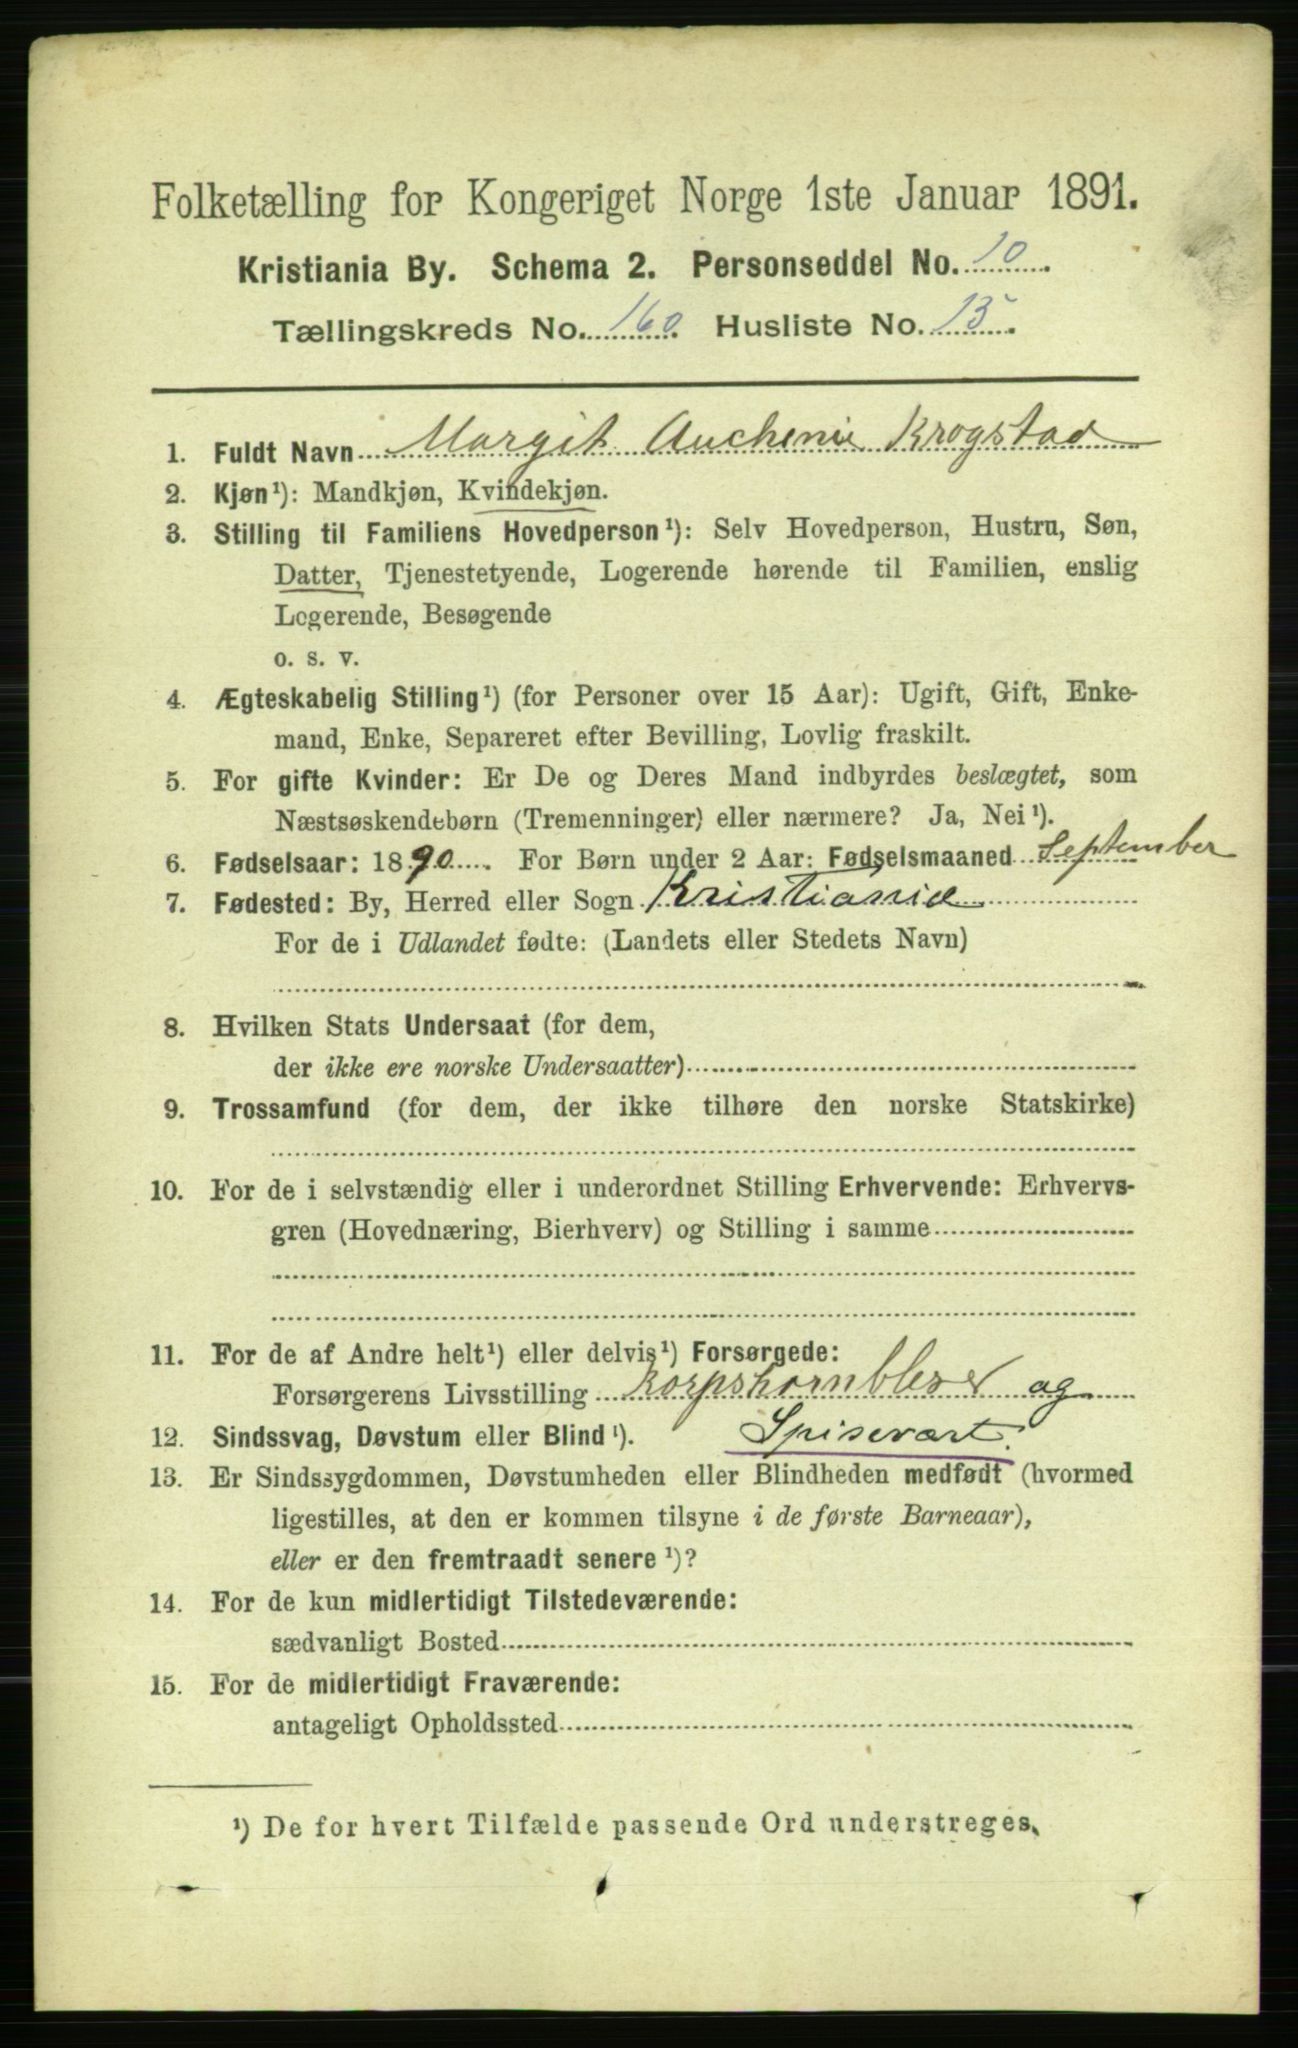 Folketælling for Kongeriget Norge 1ste Januar 1891.
Kristiania By. Schema 2. Personseddel No. 10.
Tællingskreds No. 160. Husliste No. 13.
1. Fuldt Navn Margit Auchenie Krogstad
2. Kjøn¹): Mandkjøn, Kvindekjøn.
3. Stilling til Familiens Hovedperson¹): Selv Hovedperson, Hustru, Søn,
Datter, Tjenestetyende, Logerende hørende til Familien, enslig
Logerende, Besøgende
o. s. v.
4. Ægteskabelig Stilling¹) (for Personer over 15 Aar): Ugift, Gift, Enke-
mand, Enke, Separeret efter Bevilling, Lovlig fraskilt.
5. For gifte Kvinder: Er De og Deres Mand indbyrdes beslægtet, som
Næstsøskendebørn (Tremenninger) eller nærmere? Ja, Nei¹).
6. Fødselsaar: 1890. For Børn under 2 Aar: Fødselsmaaned September
7. Fødested: By, Herred eller Sogn Kristiania
For de i Udlandet fødte: (Landets eller Stedets Navn)
8. Hvilken Stats Undersaat (for dem,
der ikke ere norske Undersaatter)
9. Trossamfund (for dem, der ikke tilhøre den norske Statskirke)
10. For de i selvstændig eller i underordnet Stilling Erhvervende: Erhvervs-
gren (Hovednæring, Bierhverv) og Stilling i samme
11. For de af Andre helt¹) eller delvis¹) Forsørgede:
Forsørgerens Livsstilling Korpshornblæser og
12. Sindssvag, Døvstum eller Blind¹). Spisevært.
13. Er Sindssygdommen, Døvstumheden eller Blindheden medfødt (hvormed
ligestilles, at den er kommen tilsyne i de første Barneaar),
eller er den fremtraadt senere¹)?
14. For de kun midlertidigt Tilstedeværende:
sædvanligt Bosted
15. For de midlertidigt Fraværende:
antageligt Opholdssted
¹) De for hvert Tilfælde passende Ord understreges.